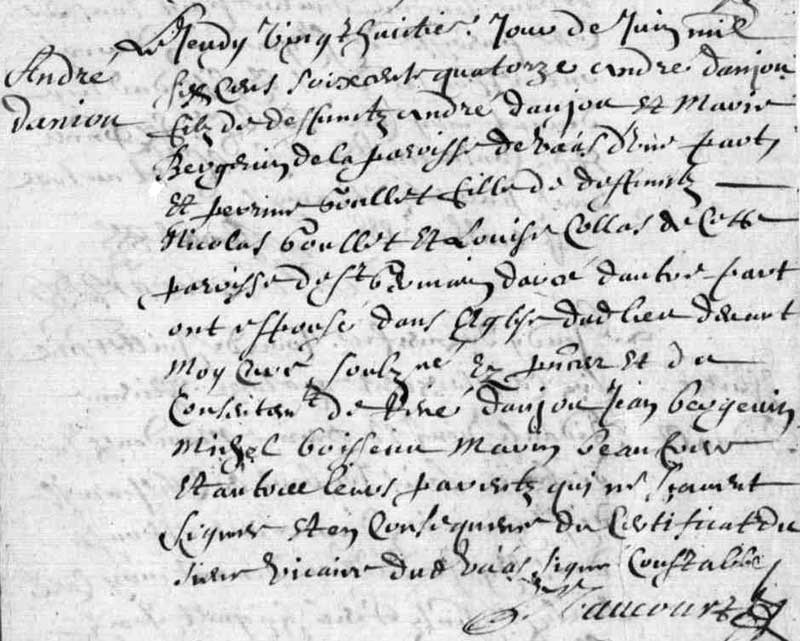 André
danjou
Le Jeudy vingt huitie. Jour de Juin mil
six cens soixcente quatorze andre danjou
filz de deffunctz andré danjou et Marie
Bergerin de la paroisse de vaas d'une part
et perrine Goullet fille de deffunctz
Nicolas Goullet et Louise Collas de Cette
paroisse de st Germain darcé dautre part
ont espousé dans l'Eglise dud lieu devant
Moy Curé soubz né En pncer et du
Consitemt de René danjou Jean bergerin
Michel boisseau Marin beau
et autre leurs parentz qui ne scavent
signer et en Consequence du Certificat du
sieur vicaire dud vaas signé Constable
Naucourt